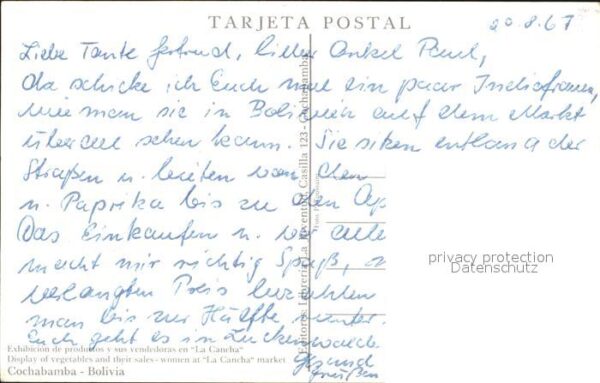 TARJETA POSTAL
20.8.67
Liebe Tante Gertrud, lieber Onkel Paul,
da schicke ich Euch mal ein paar Indiofrauen,
wie man sie in Bolivien auf dem Markt
überall sehen kann. Sie sitzen entlang der
Straßen u. bieten von den
u. Paprika bis zu den Ap
Das Einkaufen u.
macht mir richtig Spaß,
verlangten Preis bezahlen
man bis zur Hälfte runter.
Euch geht es in Luckenwalde
gesund
Grüßen
privacy protection
Datenschutz
Editores Librería La Juventud Casilla 123 - Cochabamba
Exhibición de productos y sus vendedoras en "La Cancha"
Display of vegetables and their sales - women at "La Cancha" market
Cochabamba - Bolivia